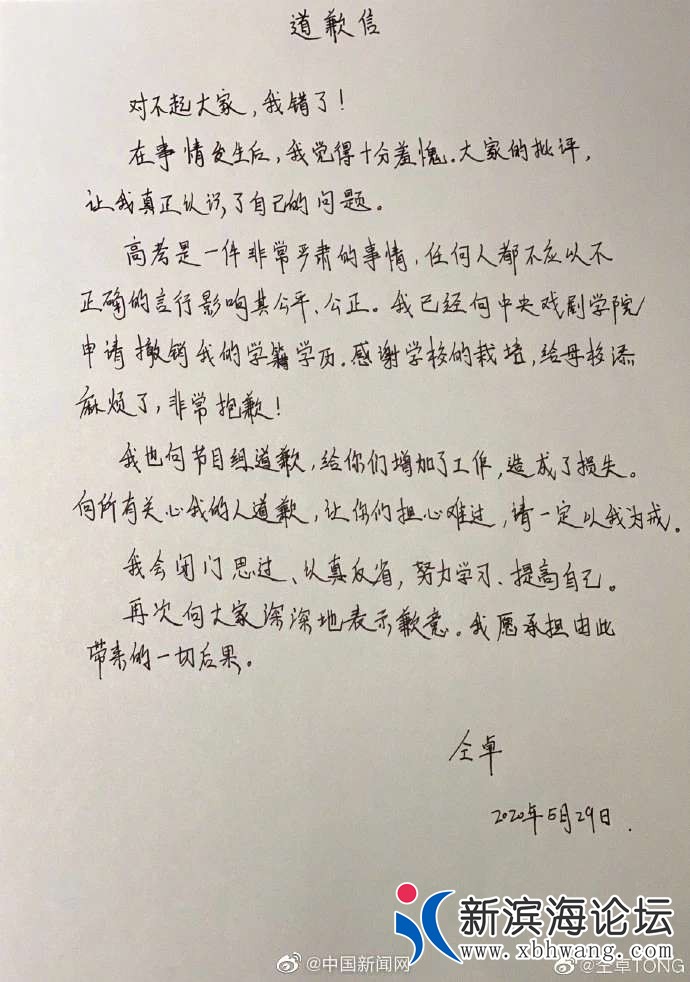 道歉信
对不起大家，我错了！
在事情发生后，我觉得十分羞愧。大家的批评，
让我真正认识了自己的问题。
高考是一件非常严肃的事情，任何人都不应以不
正确的言行影响其公平、公正。我已经向中央戏剧学院
申请撤销我的学籍学历。感谢学校的栽培，给母校添
麻烦了，非常抱歉！
我也向节目组道歉，给你们增加了工作，造成了损失。
向所有关心我的人道歉，让你们担心难过，请一定以我为戒。
我会闭门思过、认真反省，努力学习、提高自己。
再次向大家深深地表示歉意。我愿承担由此
带来的一切后果。
仝卓
2020年5月29日.
新滨海论坛
www.xbhwang.com
@中国新闻网
@仝卓TONG